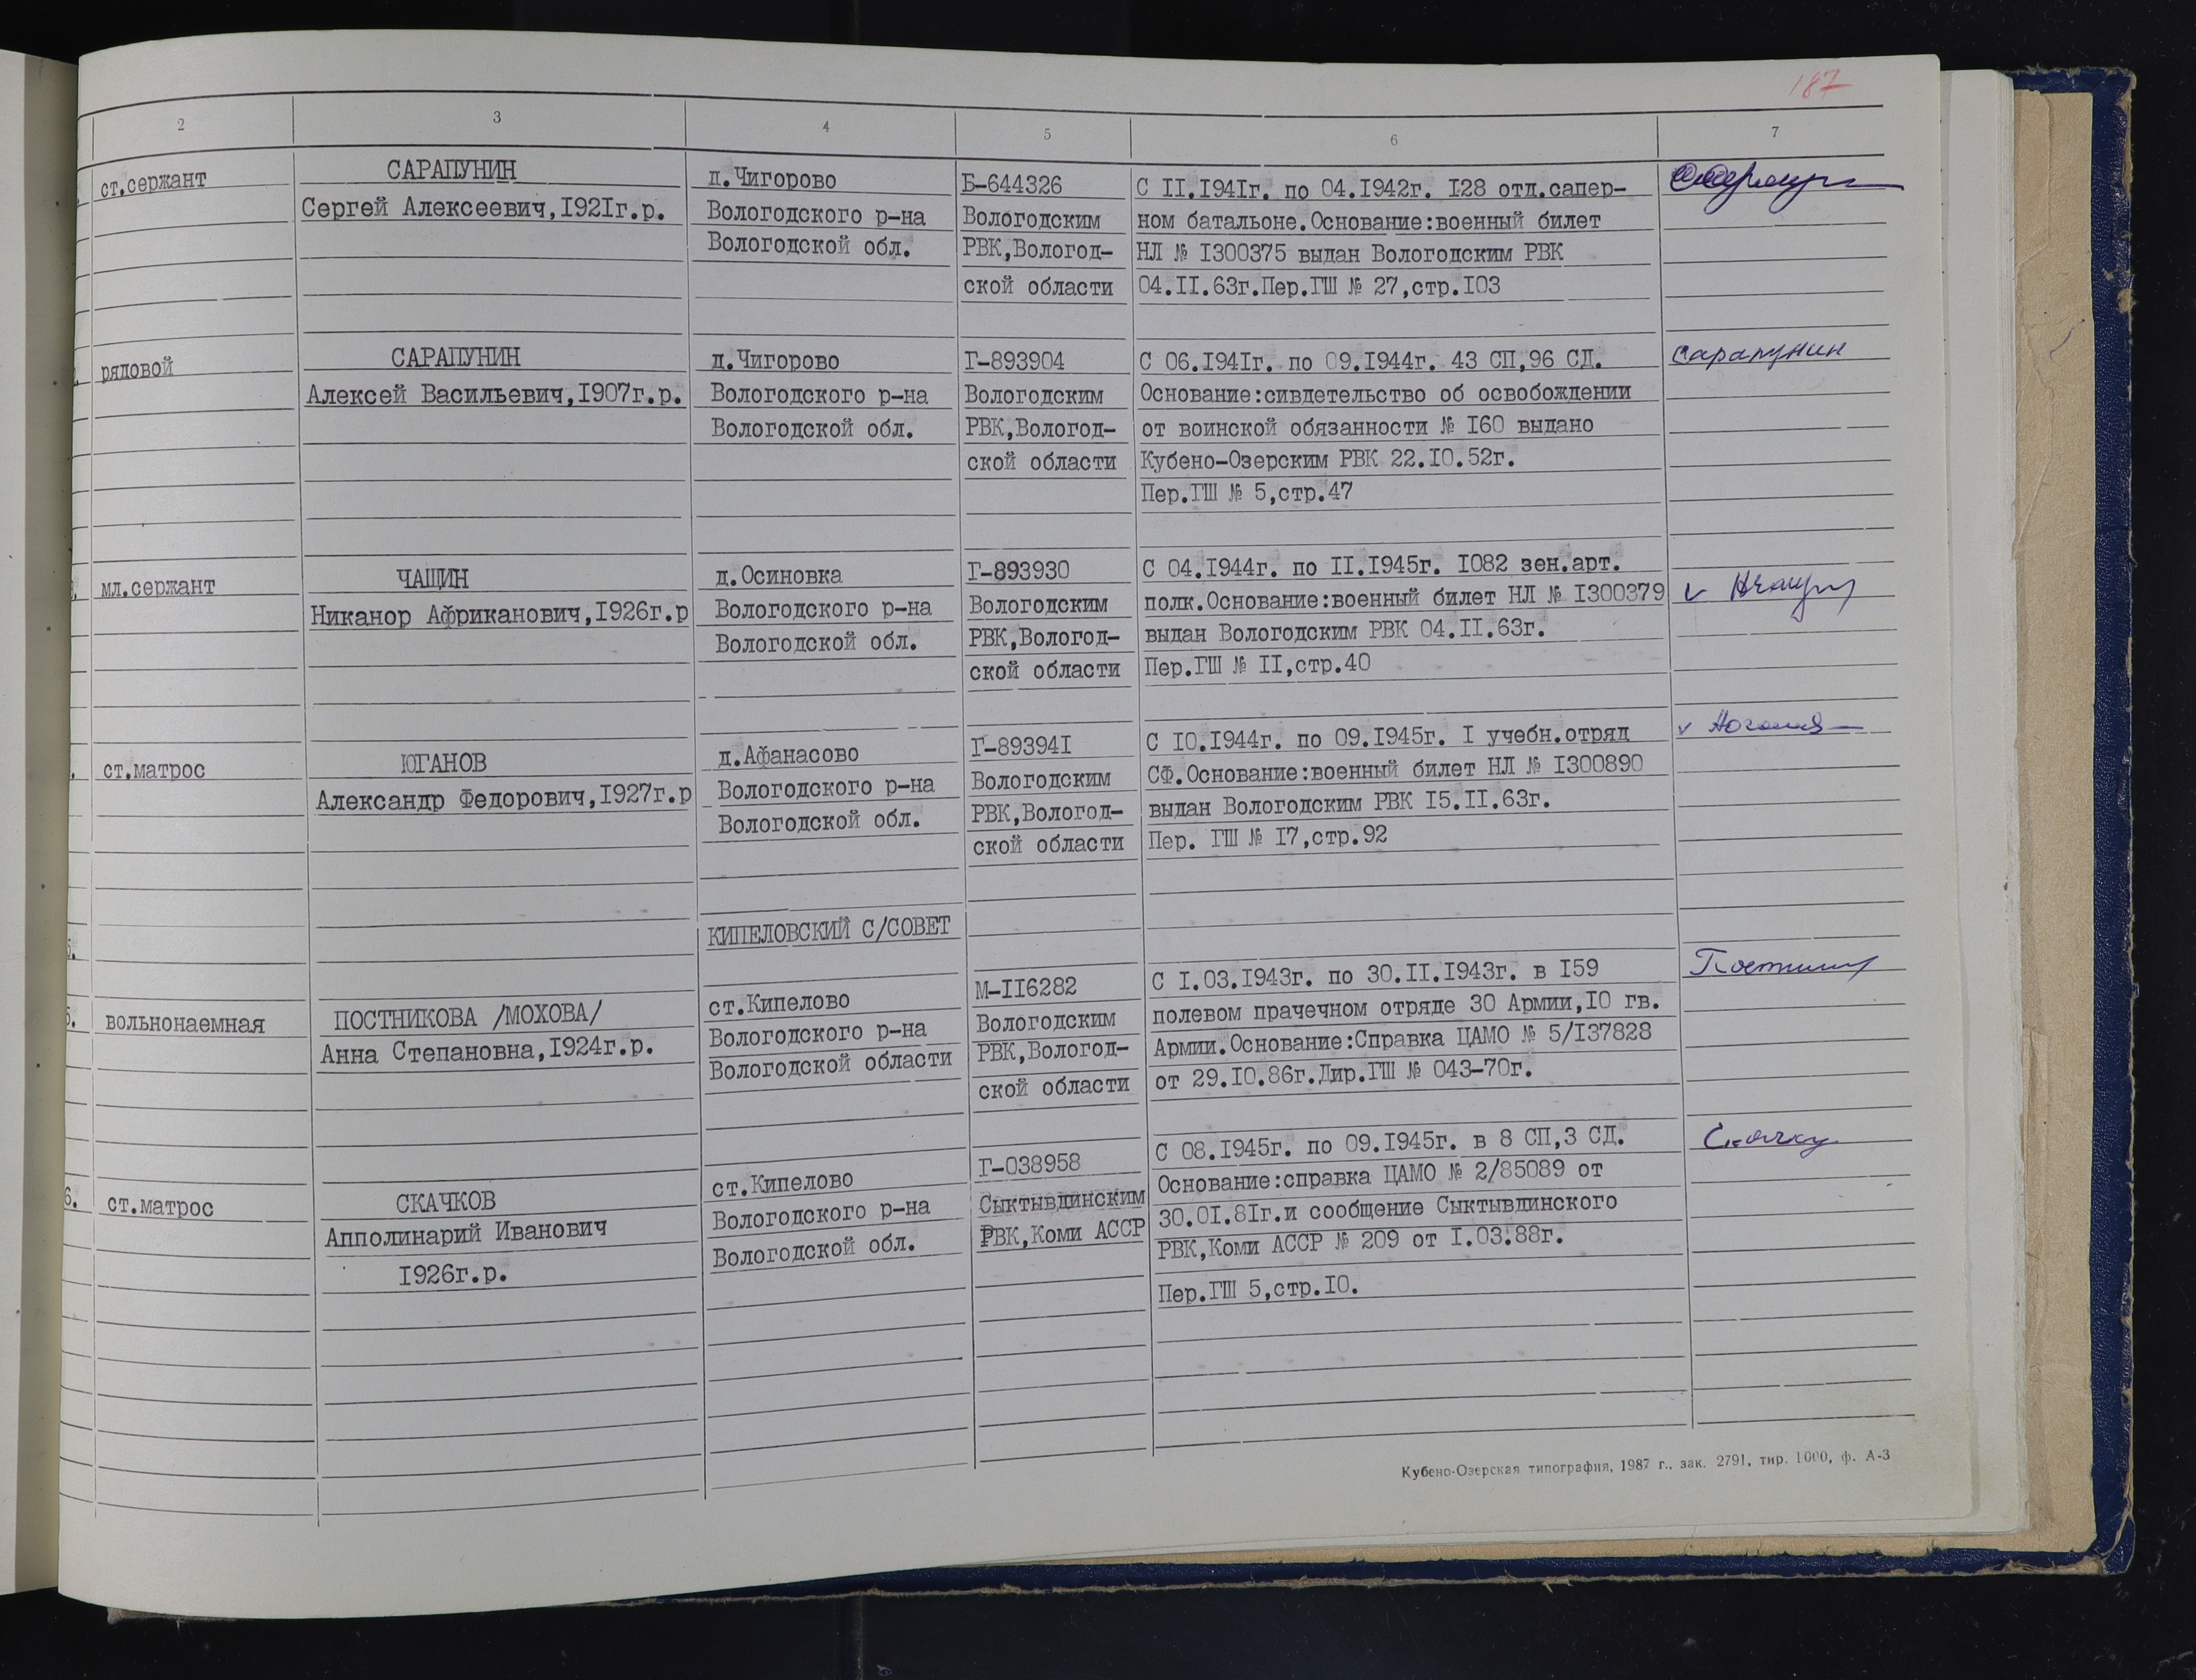 187
2 3 4 5 6 7
ст.сержант
САРАПУНИН
Сергей Алексеевич,I92Iг.р.
д.Чигорово
Вологодского р-на
Вологодской обл.
Б-644326
Вологодским
РВК,Вологод-
ской области
С II.I94Iг. по 04.I942г. I28 отд.сапер-
ном батальоне.Основание:военный билет
НЛ № I300375 выдан Вологодским РВК
04.II.63г.Пер.ГШ № 27,стр.I03
рядовой
САРАПУНИН
Алексей Васильевич,I907г.р.
д.Чигорово
Вологодского р-на
Вологодской обл.
Г-893904
Вологодским
РВК,Вологод-
ской области
С 06.I94Iг. по 09.I944г. 43 СП,96 СД.
Основание:сивдетельство об освобождении
от воинской обязанности № I60 выдано
Кубено-Озерским РВК 22.I0.52г.
Пер.ГШ № 5,стр.47
Сарапунин
мл.сержант
ЧАЩИН
Никанор Африканович,I926г.р
д.Осиновка
Вологодского р-на
Вологодской обл.
Г-893930
Вологодским
РВК,Вологод-
ской области
С 04.I944г. по II.I945г. I082 зен.арт.
полк.Основание:военный билет НЛ № I300379
выдан Вологодским РВК 04.II.63г.
Пер.ГШ № II,стр.40
ст.матрос
ЮГАНОВ
Александр Федорович,I927г.р
д.Афанасово
Вологодского р-на
Вологодской обл.
Г-89394I
Вологодским
РВК,Вологод-
ской области
С I0.I944г. по 09.I945г. I учебн.отряд
СФ.Основание:военный билет НЛ № I300890
выдан Вологодским РВК I5.II.63г.
Пер. ГШ № I7,стр.92
КИПЕЛОВСКИЙ С/СОВЕТ
5.
5.
вольнонаемная
ПОСТНИКОВА /МОХОВА/
Анна Степановна,I924г.р.
ст.Кипелово
Вологодского р-на
Вологодской области
М-II6282
Вологодским
РВК,Вологод-
ской области
С I.03.I943г. по 30.II.I943г. в I59
полевом прачечном отряде 30 Армии,I0 гв.
Армии.Основание:Справка ЦАМО № 5/I37828
от 29.I0.86г.Дир.ГШ № 043-70г.
6.
ст.матрос
СКАЧКОВ
Апполинарий Иванович
I926г.р.
ст.Кипелово
Вологодского р-на
Вологодской обл.
Г-038958
Сыктывдинским
РВК,Коми АССР
С 08.I945г. по 09.I945г. в 8 СП,3 СД.
Основание:справка ЦАМО № 2/85089 от
30.0I.8Iг.и сообщение Сыктывдинского
РВК,Коми АССР № 209 от I.03.88г.
Пер.ГШ 5,стр.I0.
Кубено-Озерская типография, 1987 г., зак. 2791, тир. 1000, ф. А-3